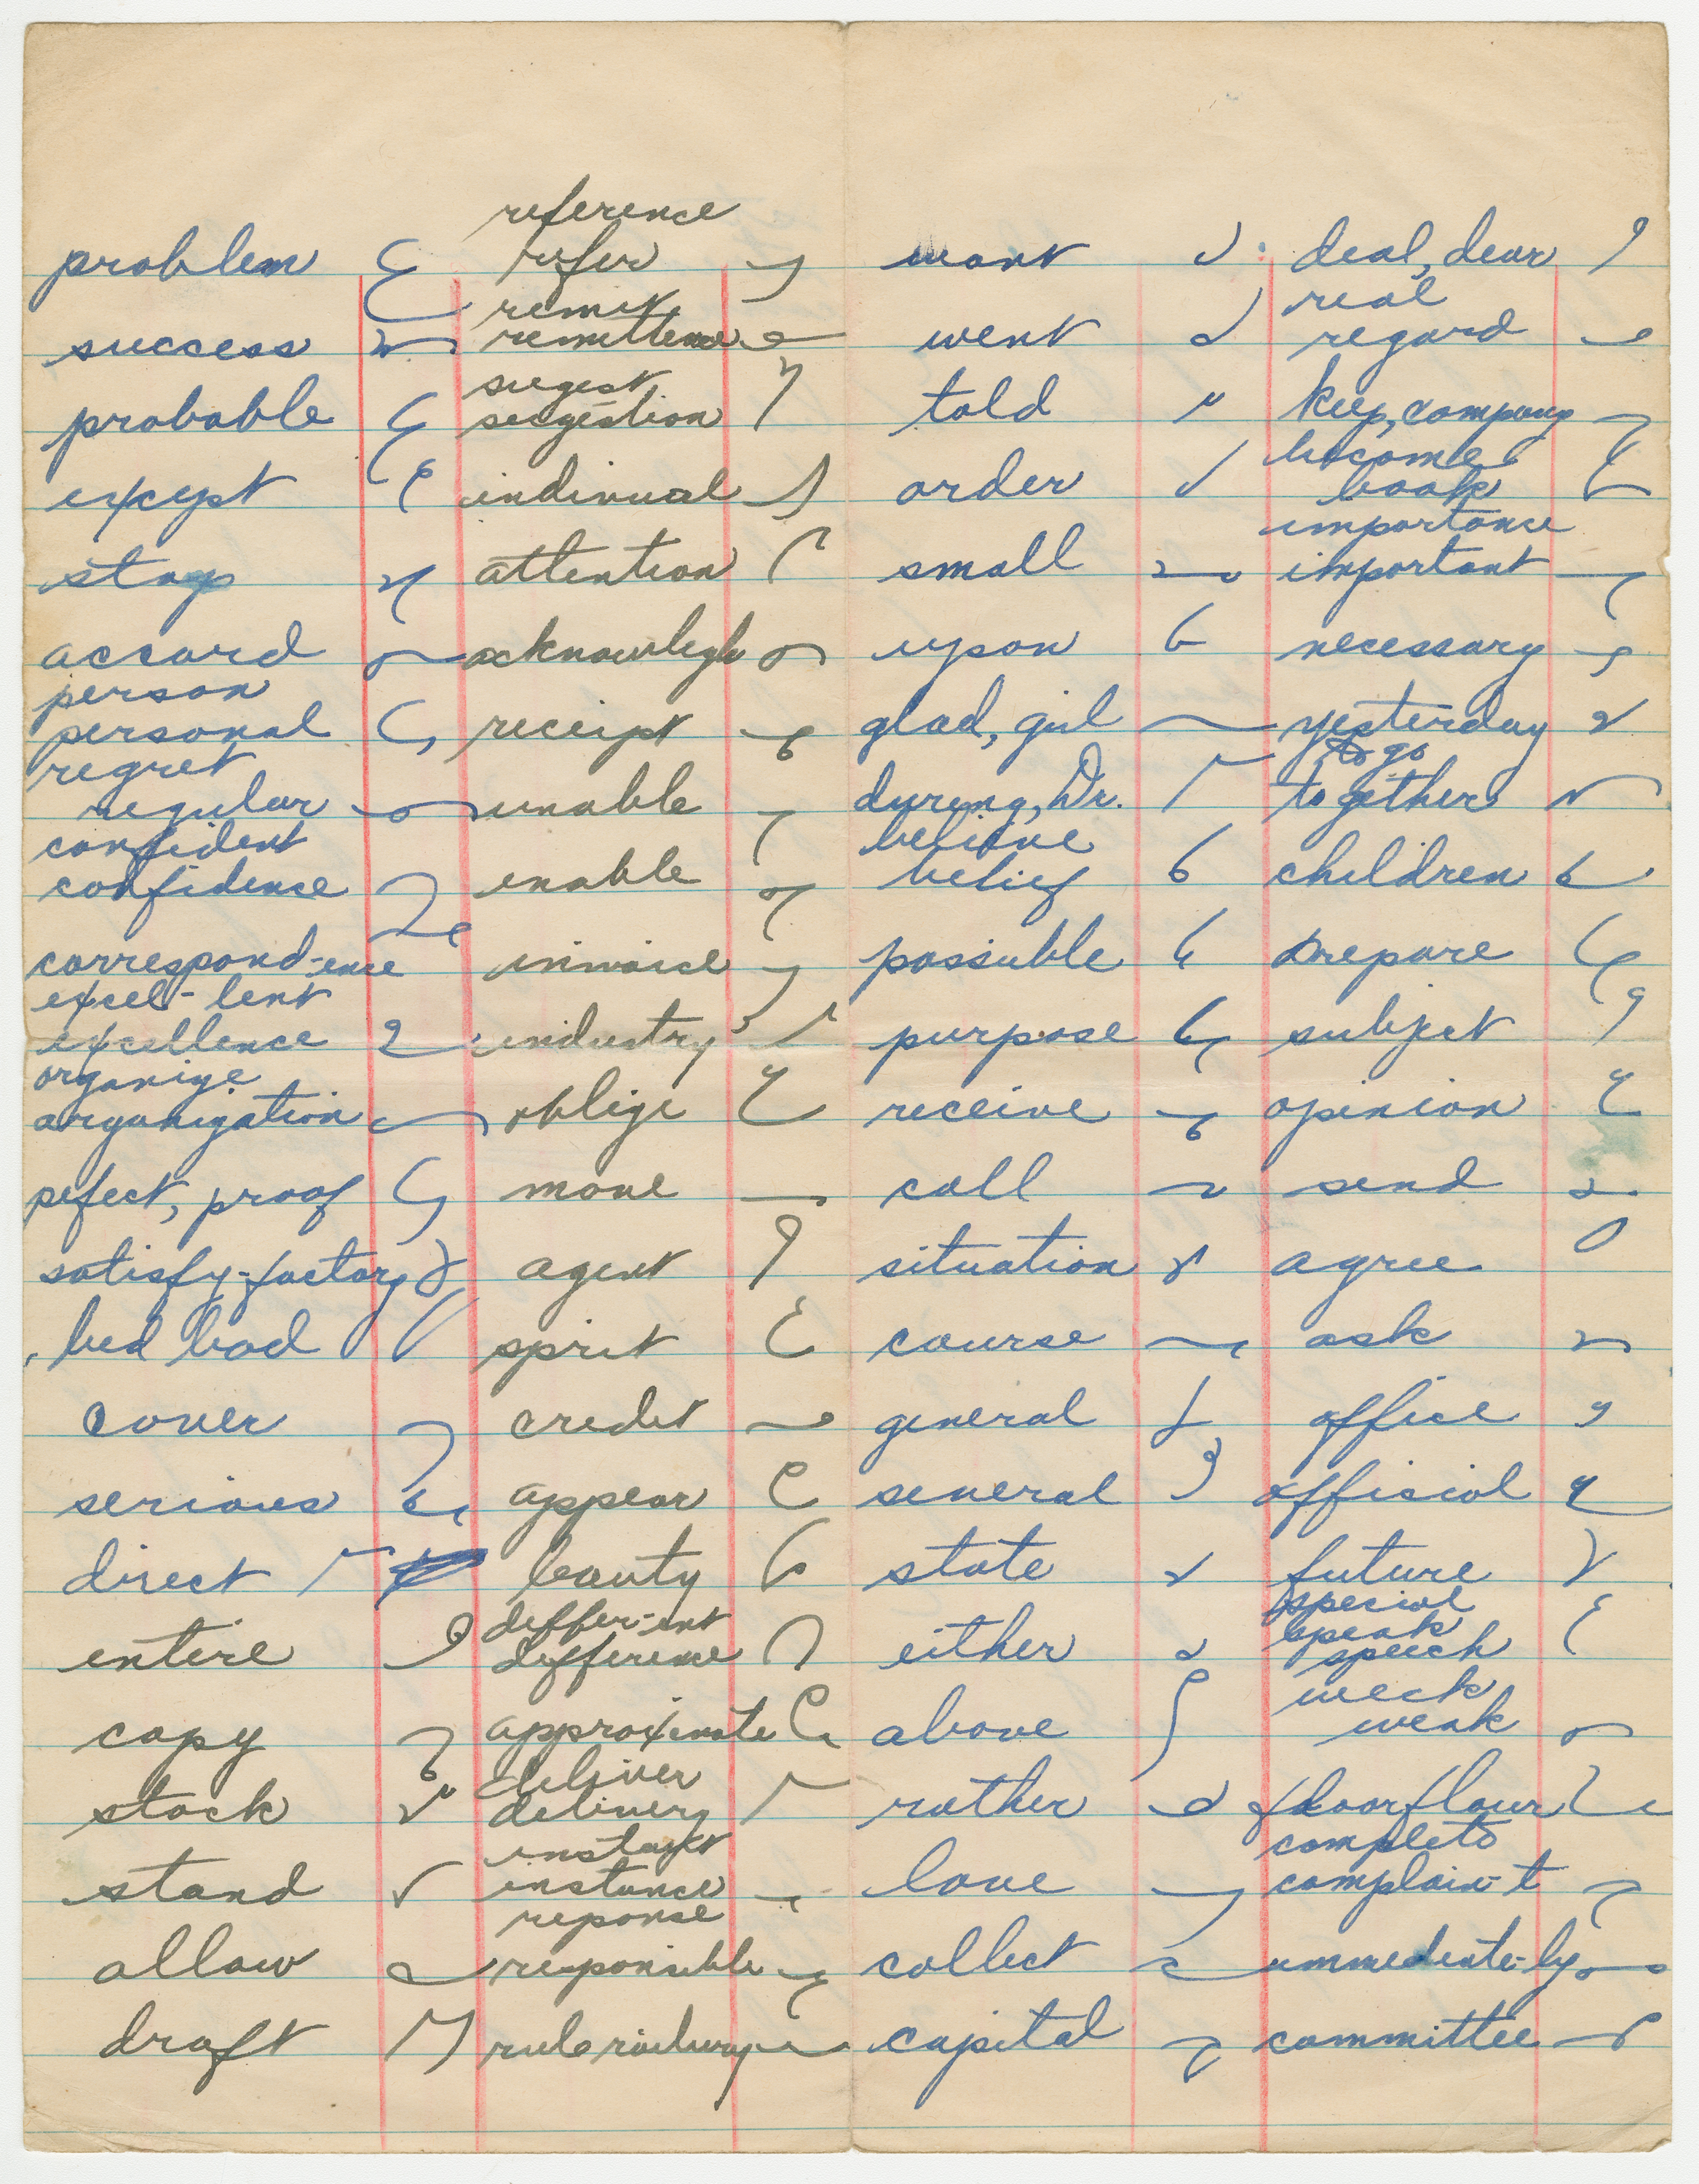 problem
success
probable
except
stop
accord
person
personal
regret
regular
confident
confidence
correspond-ence
excel-lent
excellence
organize
organization
pefect, proof
satisfy-factory
bed bad
cover
serious
direct
entire
copy
stock
stand
allow
draft
reference
refer
remit
remittence
sugest
sugestion
indivual
attention
acknowlegh
receipt
unable
enable
invoice
industry
oblige
move
agent
sprit
credit
appear
beauty
differ-ent
difference
approximate
deliver
delivery
instant
instance
reponse
responsible
rule railway
want
went
told
order
small
upon
glad, girl
during, Dr.
believe
belief
possible
purpose
receive
call
situation
course
general
several
state
either
above
rather
love
collect
capital
deal, dear
real
regard
keep, company
become
book
importance
important
necessary
yesterday
to go
together
children
prepare
subject
opinion
send
agree
ask
office
official
future
special
speak
speech
week
weak
floor flour
complete
complain-t
immediate-ly
committee